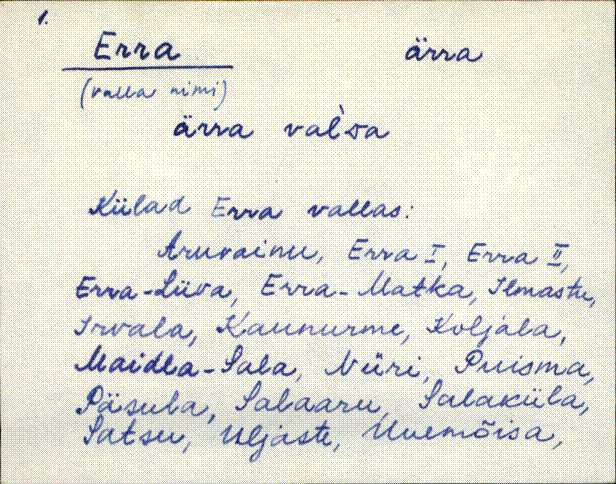 1.
Erra ärra
(valla nimi)
ärra val'sa
Külad Erra vallas:
Aruvainu, Erra I, Erra II,
Erra-Liiva, Erra-Matka, Ilmaste,
Irvala, Kaunurme, Koljala,
Maidla-Sala, Nüri, Puisma,
Päsula, Salaaru, Salaküla,
Satsu, Uljaste, Uuemõisa,